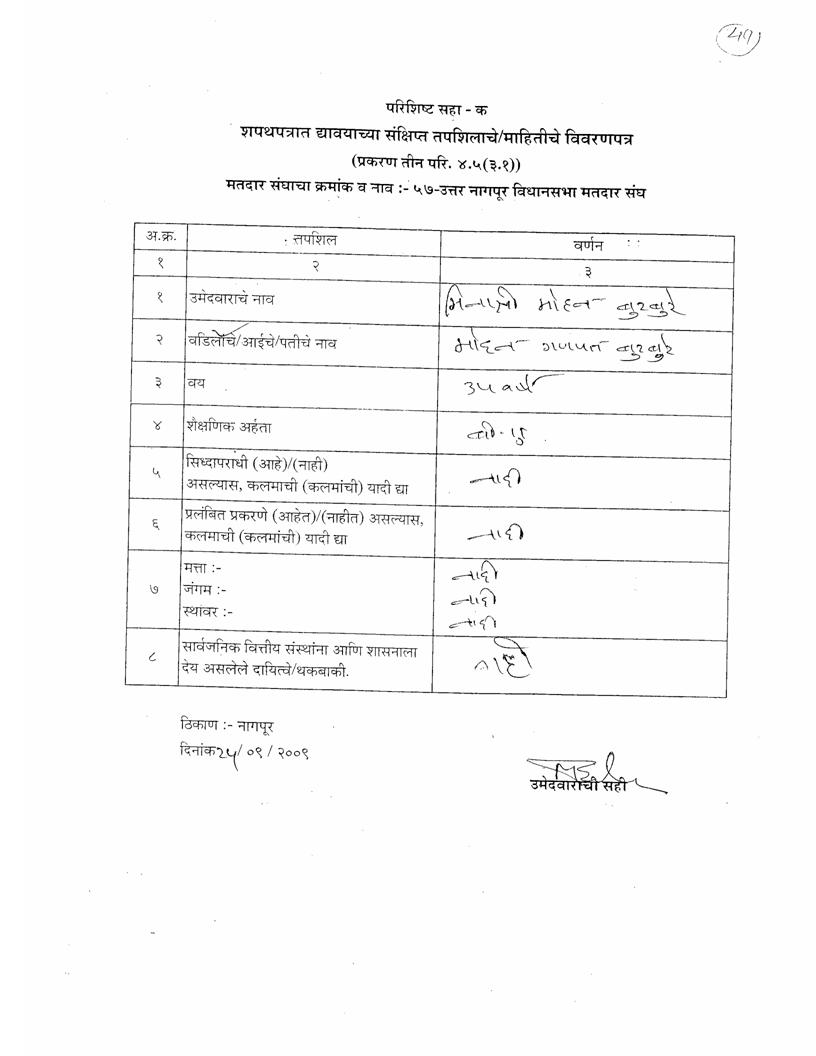 49
परिशिष्ट सहा - क
शपथपत्रात द्यावयाच्या संक्षिप्त तपशिलाचे/माहितीचे विवरणपत्र
(प्रकरण तीन परि. ४.५(३.१))
मतदार संघाचा क्रमांक व नाव :- ५७-उत्तर नागपूर विधानसभा मतदार संघ
अ.क्र. तपशिल वर्णन
१ २ ३
१ उमेदवाराचे नाव मिनाक्षी मोहन बुरबुरे
२ वडिलांचे/आईचे/पतीचे नाव मोहन गणपत बुरबुरे
३ वय ३५ वर्ष
४ शैक्षणिक अर्हता बी.ए.
५ सिध्दापराधी (आहे)/(नाही)
असल्यास, कलमाची (कलमांची) यादी द्या नाही
६ प्रलंबित प्रकरणे (आहेत)/(नाहीत) असल्यास,
कलमाची (कलमांची) यादी द्या नाही
मत्ता :- नाही
७ जंगम :- नाही
स्थावर :- नाही
८ सार्वजनिक वित्तीय संस्थांना आणि शासनाला
देय असलेले दायित्वे/थकबाकी. नाही
ठिकाण :- नागपूर
दिनांक २५/ ०९ / २००९
उमेदवाराची सही